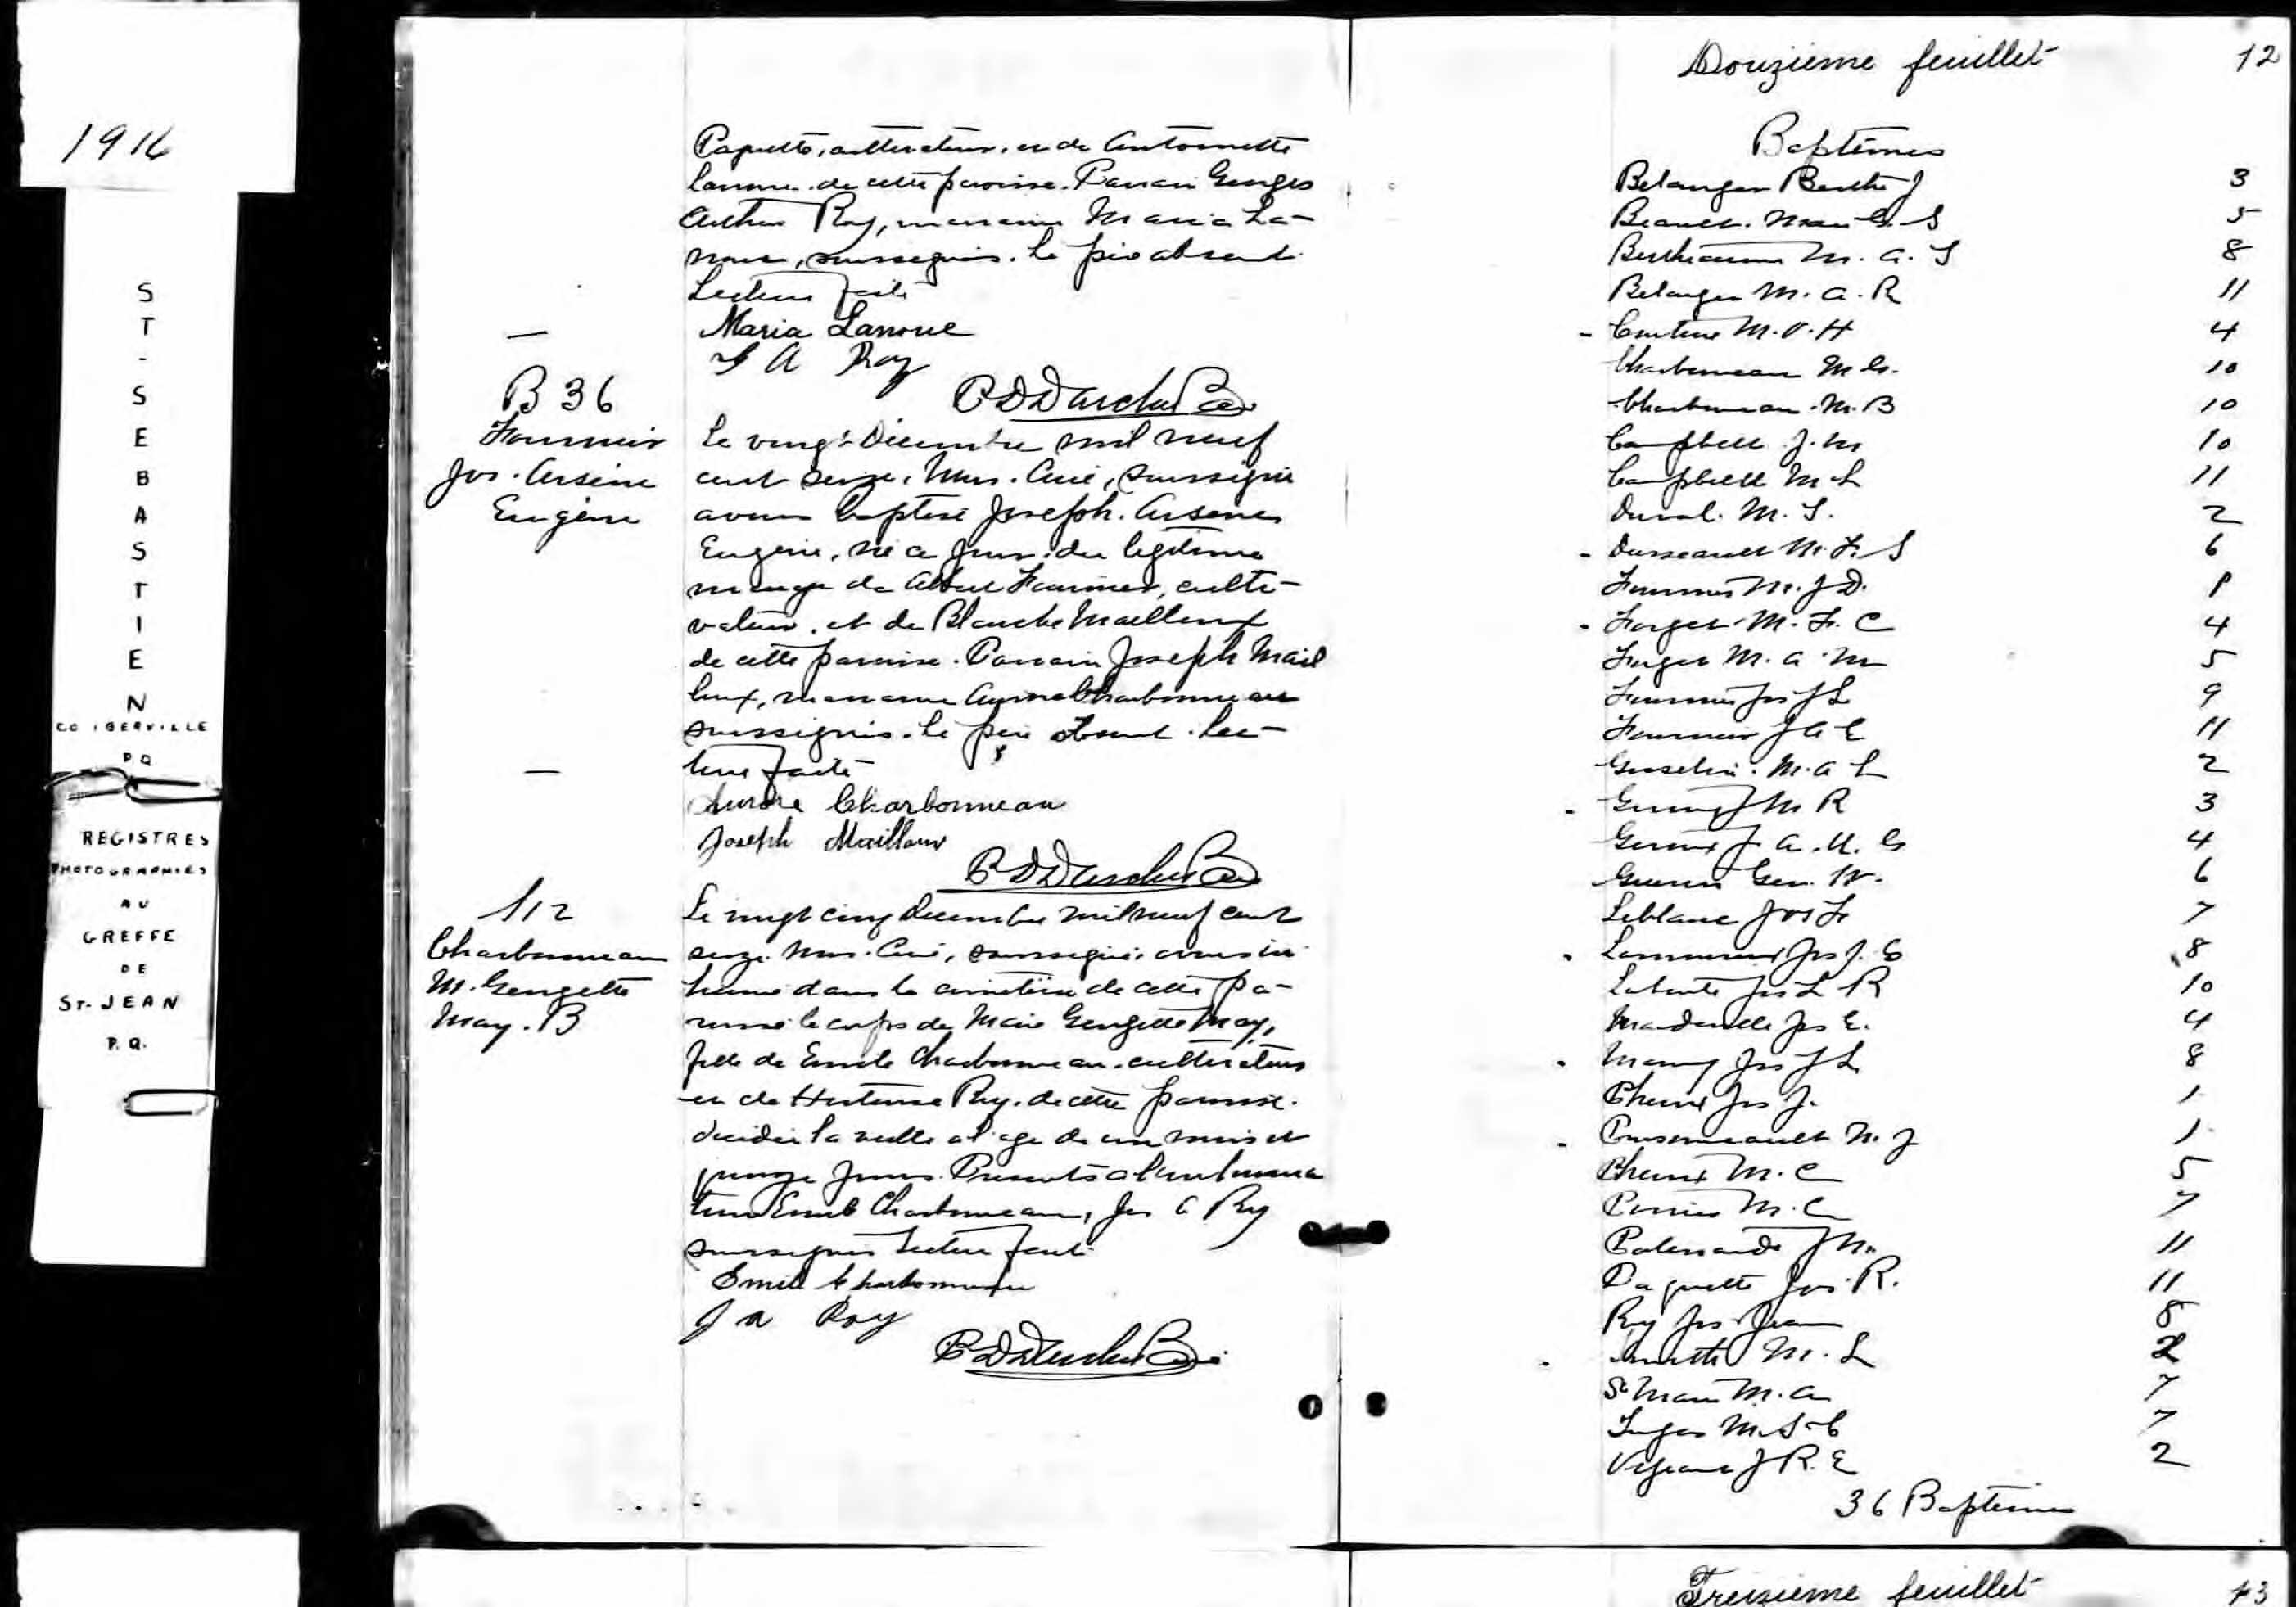 1916
ST-SEBASTIEN
CO IBERVILLE
P.Q.
REGISTRES
PHOTOGRAPHIES
AU
GREFFE
DE
ST. JEAN
P.Q.
Paquette, cultivateur, et de Antoinette
Lanoue de cette paroisse. Parrain Georges
Arthur Roy, marraine Maria La-
noue, soussignés. Le père absent.
Lecture faite
Maria Lanoue
G A Roy
B 36
Fournier
Jos. Arsène
Eugène
Le vingt Décembre mil neuf
cent seize, Nous, Curé, soussigné
avons baptisé Joseph. Arsène
Eugène, né ce jour, du légitime
mariage de Albert Fournier, culti-
vateur, et de Blanche Mailloux
de cette paroisse. Parrain Joseph Mail
loux, marraine Charbonneau
soussignés. Le père absent. Lec-
ture faite
Aurore Charbonneau
Joseph Mailloux
S 12
Charbonneau
M. Georgette
May. B
Le vingt cinq Decembre mil neuf cent
seize. Nous. Curé, soussigné, avons in
humé dans le cimetière de cette pa-
roisse le corps de Marie Georgette May,
fille de Emile Charbonneau. cultivateur
et de Hortense Roy. de cette paroisse.
décédée la veille a l'age de un mois et
quinze jours. Presents a l'inhuma
tion Emile Charbonneau, Jos A Roy
soussignés Lecture faite
Emile Charbonneau
J A Roy
Douzième feuillet 12
Baptêmes
Belanger Berthe J 3
M. G. S 5
Berthiaume M. A. S 8
Belanger M. A. R 11
- Couture M. O. H 4
Charbonneau M G. 10
Charbonneau. M. B 10
Campbell J. M 10
Campbell M L 11
Duval. M. S. 2
- Dusseault M. F. S 6
Fournier M. J D.
- Forget M. F. C 4
Forget M. A. M 5
Fournier Jos J L 9
Fournier J A E 11
Gosselin. M. A L 2
M R 3
J. A. U. G 4
Guerin Geo. W. 6
Leblanc Jos F 7
Jos J. E 8
Jos L R 10
Jos E. 4
Jos J L 8
Jos J. 1
M. J 1
M. C 5
Perrier M. C 7
J M. 11
Paquette Jos. R. 11
Roy Jos Jean 8
M. L 2
St Mars M. A 7
M. S. C 7
J R. E 2
36 Baptêmes
Treizième feuillet 13